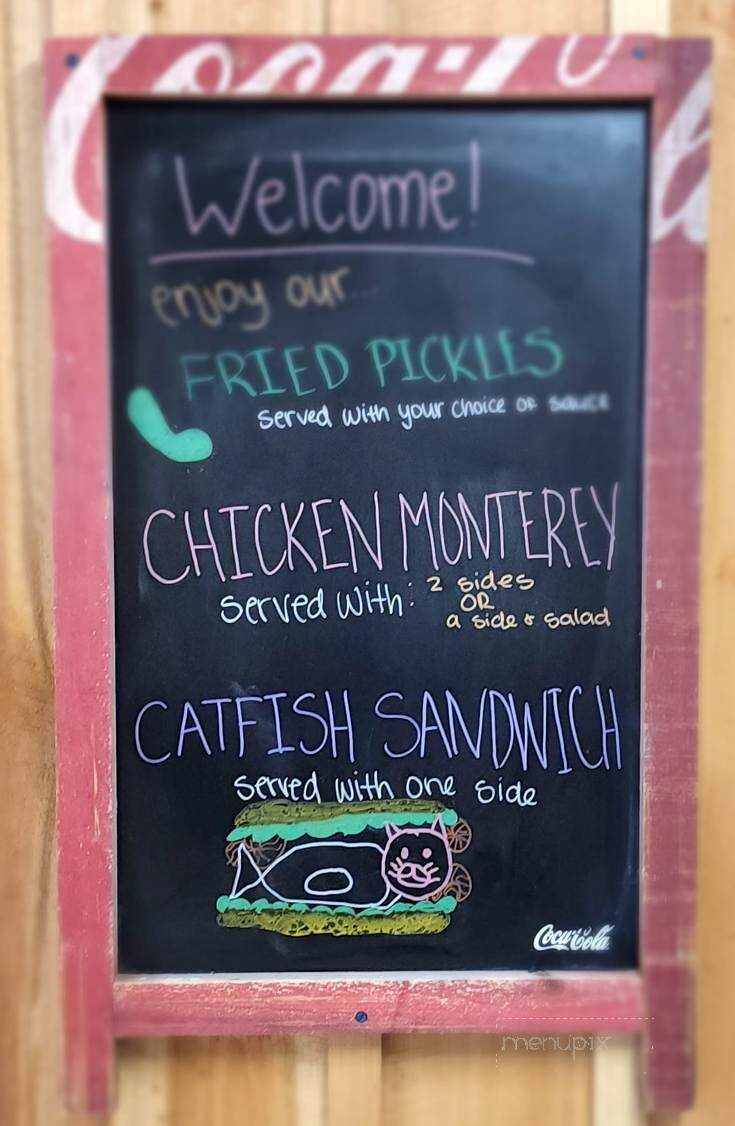 Coca-Cola
Welcome!
enjoy our...
FRIED PICKLES
Served with your choice of sauce
CHICKEN MONTEREY
Served with: 2 sides
OR
a side & salad
CATFISH SANDWICH
Served with one side
Coca-Cola
menupix